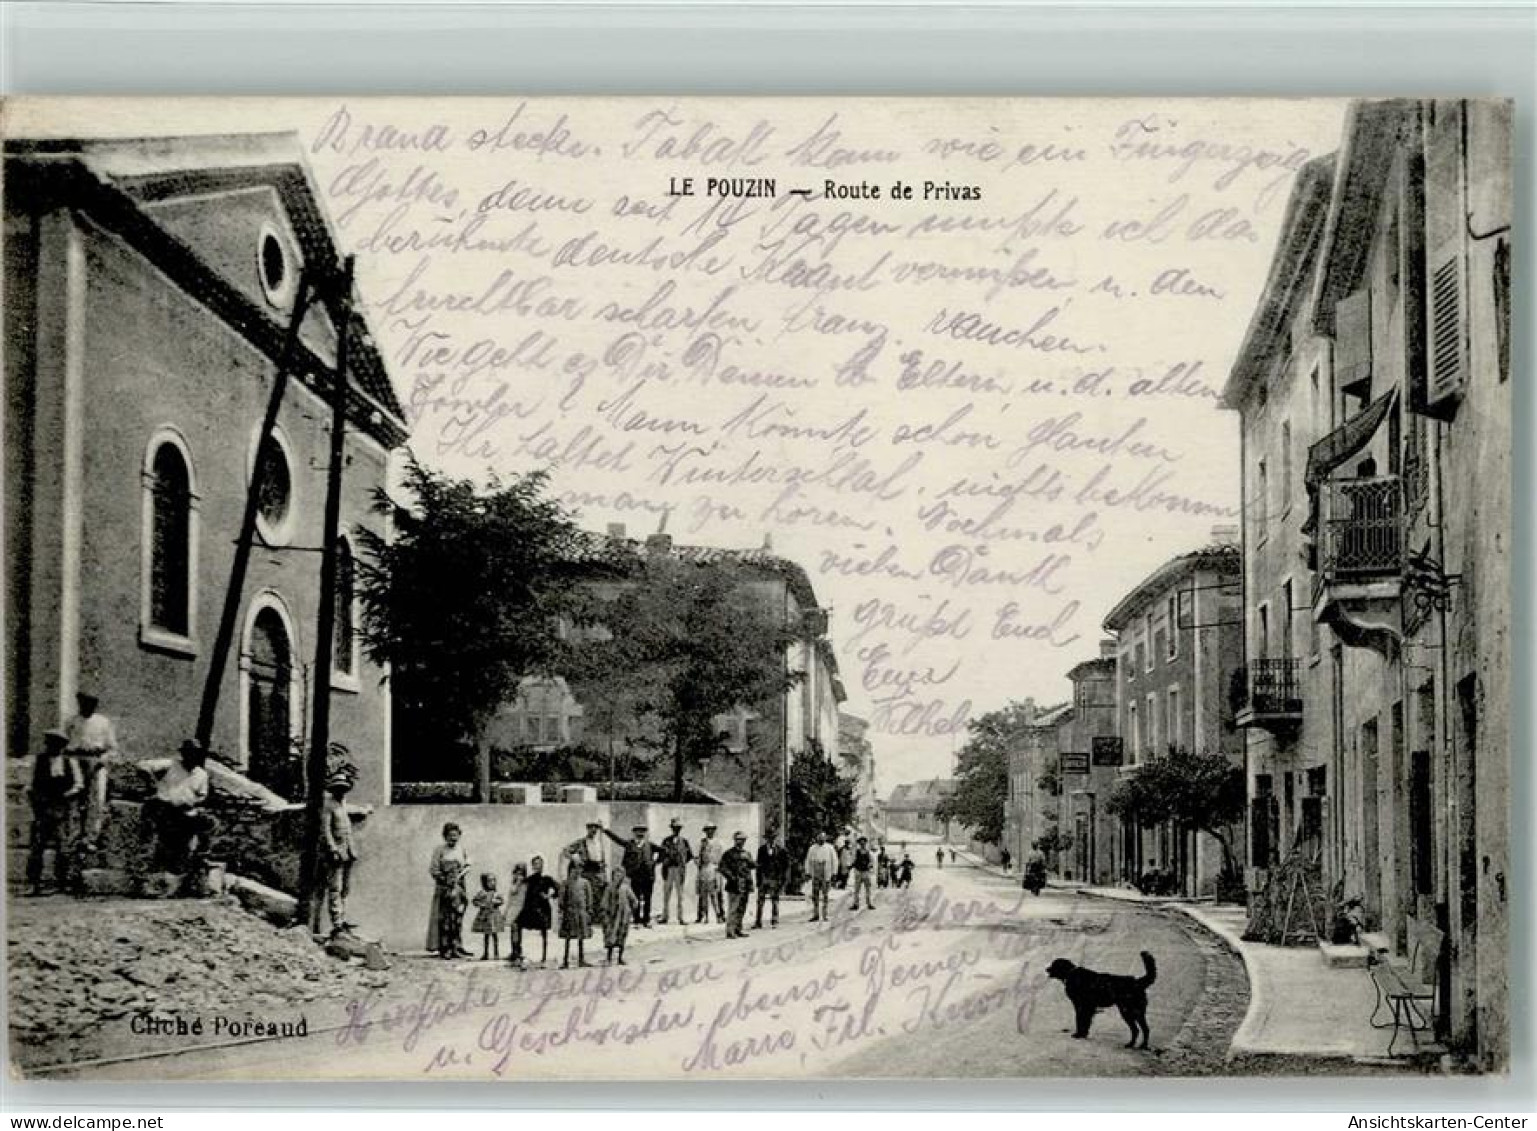 Brand stecken. Tabak kam wie ein Fingerzeig
Gottes, denn seit 14 Tagen mußte ich das
LE POUZIN — Route de Privas
berühmte deutsche Kraut vermissen u. den
furchtbar scharfen franz. rauchen.
Wie geht es Dir, Deinen lb Eltern, u. d. alten
? Man könnte schon glauben
Ihr haltet Winterschlaf, nichts bekommt
man zu hören. Nochmals
vielen Dank
grüßt Euch
Euer
Herzliche Grüße an m. lb. Eltern
u. Geschwister, ebenso Deiner
Marie, Frl.
Cliché Poreaud
delcampe.net
Ansichtskarten-Center